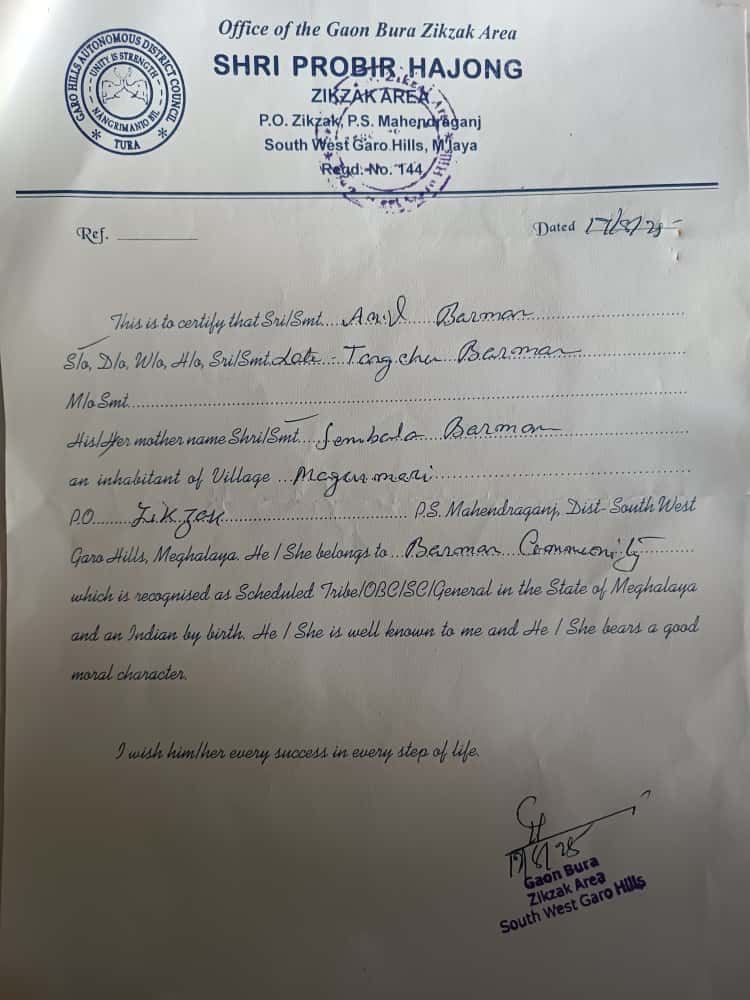 Office of the Gaon Bura Zikzak Area
SHRI PROBIR HAJONG
ZIKZAK AREA
P.O. Zikzak, P.S. Mahendraganj
South West Garo Hills, M'laya
Regd. No. 144
GARO HILLS AUTONOMOUS DISTRICT COUNCIL
UNITY IS STRENGTH
NANGRIMANIO BIL
TURA
Ref.
Dated 17/8/25
This is to certify that Sri/Smt. Anil Barman
S/o, D/o, W/o, H/o, Sri/Smt. Late - Tangchu Barman
M/o Smt.
His/Her mother name Shri/Smt. Barman
an inhabitant of Village Magurmari
P.O. Zikzak P.S. Mahendraganj, Dist- South West
Garo Hills, Meghalaya. He / She belongs to Barman Community
which is recognised as Scheduled Tribe/OBC/SC/General in the State of Meghalaya
and an Indian by birth. He / She is well known to me and He / She bears a good
moral character.
I wish him/her every success in every step of life.
17/8/25
Gaon Bura
Zikzak Area
South West Garo Hills